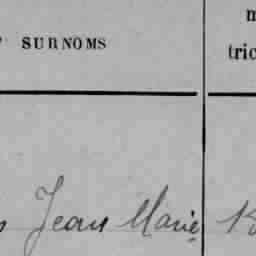 SURNOMS
tric
Jean Marie